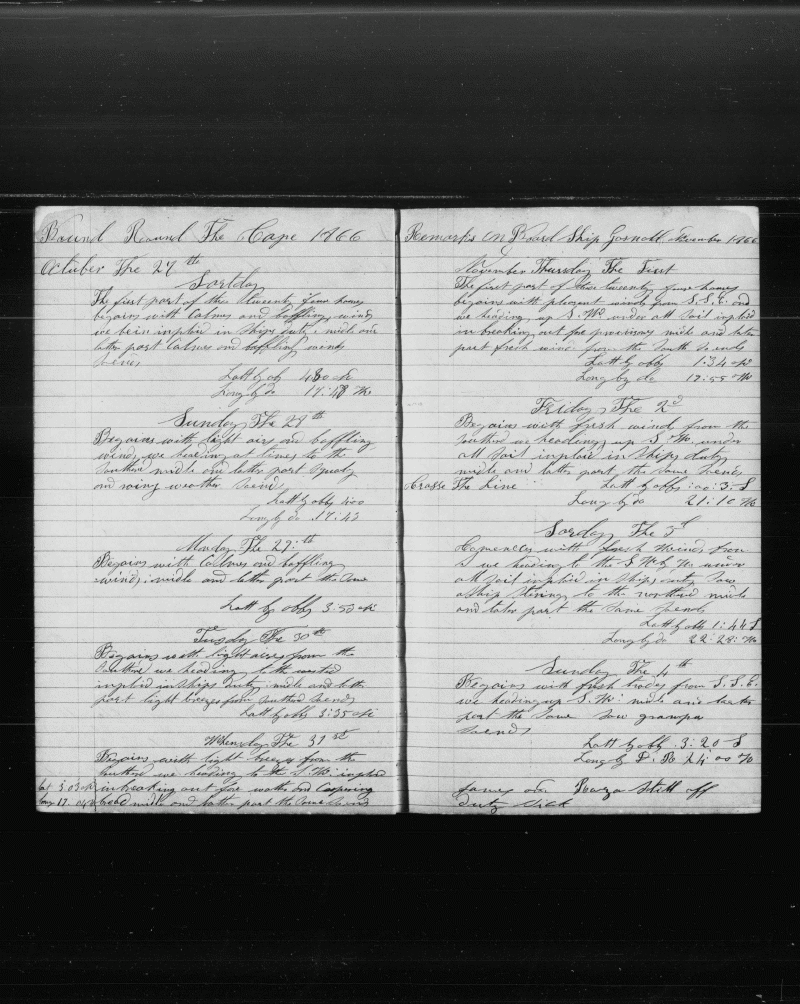 Bound Round The Cape 1866
October The 27th
Sortday
The first part of these twenty four hours
begains with Calmes and baffling winds
we bein inploid in ships duty midle and
latter part Calmes and baffling winds
Soends
Latt by ob 4:80
Long by do 17:48 W
Sunday The 28th
Begains with light airs and baffling
winds we heading at times to the
Southard midle and latter part Squaly
and rainy weather Soends
Latt by obbs 4:00
Long by do 17:43
Monday The 29th
Begains with Calmes and baffling
winds midle and latter part the Same
Latt by obbs 3:53
Tusday The 30th
Begains with light aires from the
Southard we heading to the
inploid in ships duty midle and latter
part light breezes from Southard Soends
Latt by obbs 3:35
Whensday The 31st
Begains with light breezes from the
Southard we heading to the S.W. inploid
Lat 3.03 in breaking out for water and Coopering
Long 17. midle and latter part the Same Soends
Remarks on Board Ship November 1866
November Thursday The First
The first part of these twenty four hours
begains with plesent winds from S.S.E. and
we heading up S.W. under all Sail inploid
in breaking out for provisons midle and latter
part fresh winds from the South Soends
Latt by obbs 1:34
Long by do 19:55 W
Friday The 2d
Begains with fresh winds from the
Southard we heading up S.W. under
all Sail inploid in ships duty
midle and latter part the Same Soends
Crosse The Line Latt by obbs 00:3 S
Long by do 21:10 W
Sorday The 3d
Comences with fresh Winds from
S we heading to the S W by W under
all Sail inploid in Ships duty Saw
a Ship Stering to the northard midle
and latter part the Same Soends
Latt by obbs 1:44 S
Long by do 22:28 W
Sunday The 4th
Begains with fresh trades from S.S.E.
we heading up S.W. midle and latter
part the Same Saw grampu
Soends
Latt by obbs 3:20 S
Long by D. R 24:00 W
Still off
duty Sick